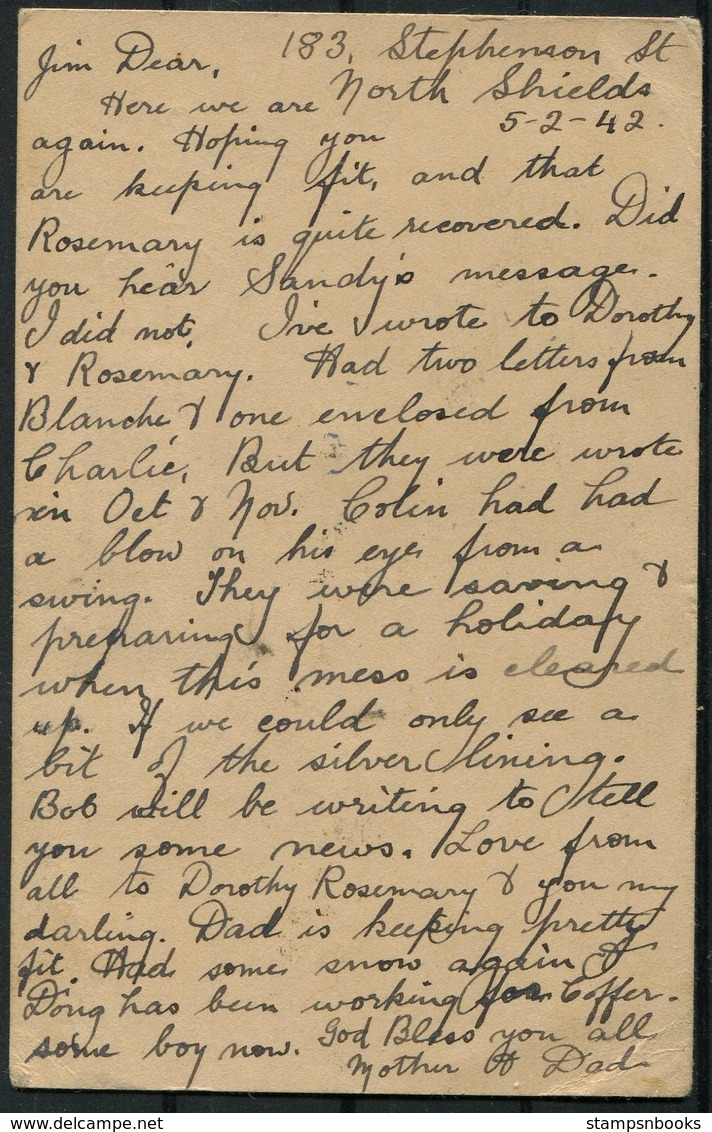 183, Stephenson St
Jim Dear,
North Shields
Here we are
5-2-42.
again. Hoping you
are keeping fit, and that
Rosemary is quite recovered. Did
you hear Sandy's message.
I did not. I've wrote to Dorothy
& Rosemary. Had two letters from
Blanche & one enclosed from
Charlie, But they were wrote
in Oct & Nov. Colin had had
a blow on his eye from a
swing. They were saving &
preparing for a holiday
when this mess is cleared
up. If we could only see a
bit of the silver lining.
Bob will be writing to tell
you some news. Love from
all to Dorothy Rosemary & you my
darling. Dad is keeping pretty
fit. Had some snow again &
Doug has been working for Coffer.
some boy now. God Bless you all
Mother & Dad
stampsnbooks